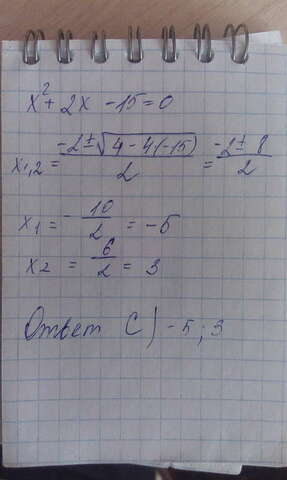 x² + 2x - 15 = 0
x1,2 = (-2 ± √(4 - 4(-15))) / 2 = (-2 ± 8) / 2
x1 = - 10/2 = -5
x2 = 6/2 = 3
Ответ C) -5; 3